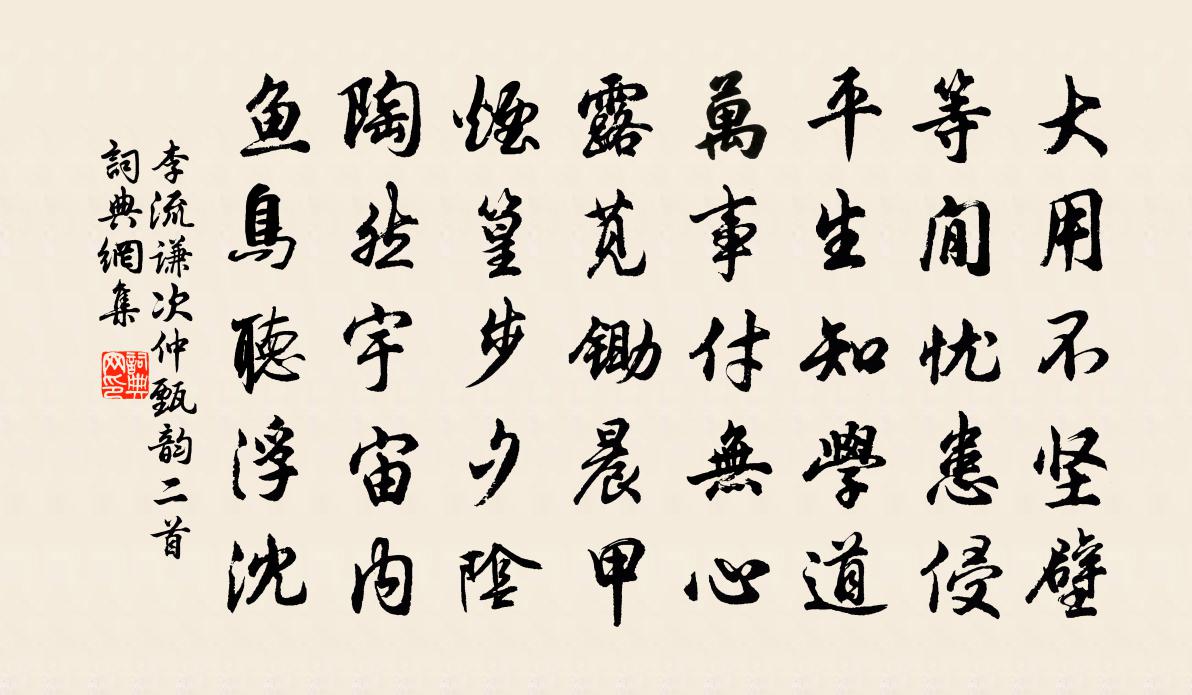 大用不坚壁
等闲忧患侵
平生知學道
萬事付無心
露莧鋤晨甲
煙篁步夕陰
陶然宇宙内
鱼鳥聽浮沈
李流谦次仲甄韵二首
詞典網集
詞典网印